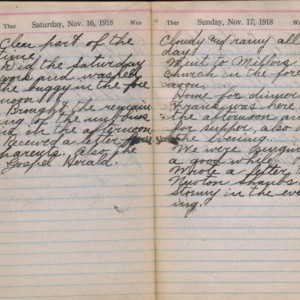 Ther Saturday, Nov. 16, 1918 Wea
Clear part of the
time.
Did the Saturday
work and washed
the buggy in the fore
noon.
Brought the remain
of the
in in the afternoon
Received a letter from
parents. also the
Gospel Herald.
Ther Sunday, Nov. 17, 1918 Wea
Cloudy and rainy all
day.
Went to
Church in the fore
noon.
Home for dinner
Frank was here in
the afternoon and
for supper, also
the evening.
We were singing
a good while.
Wrote a letter to
Newton
stormy in the even
ing.